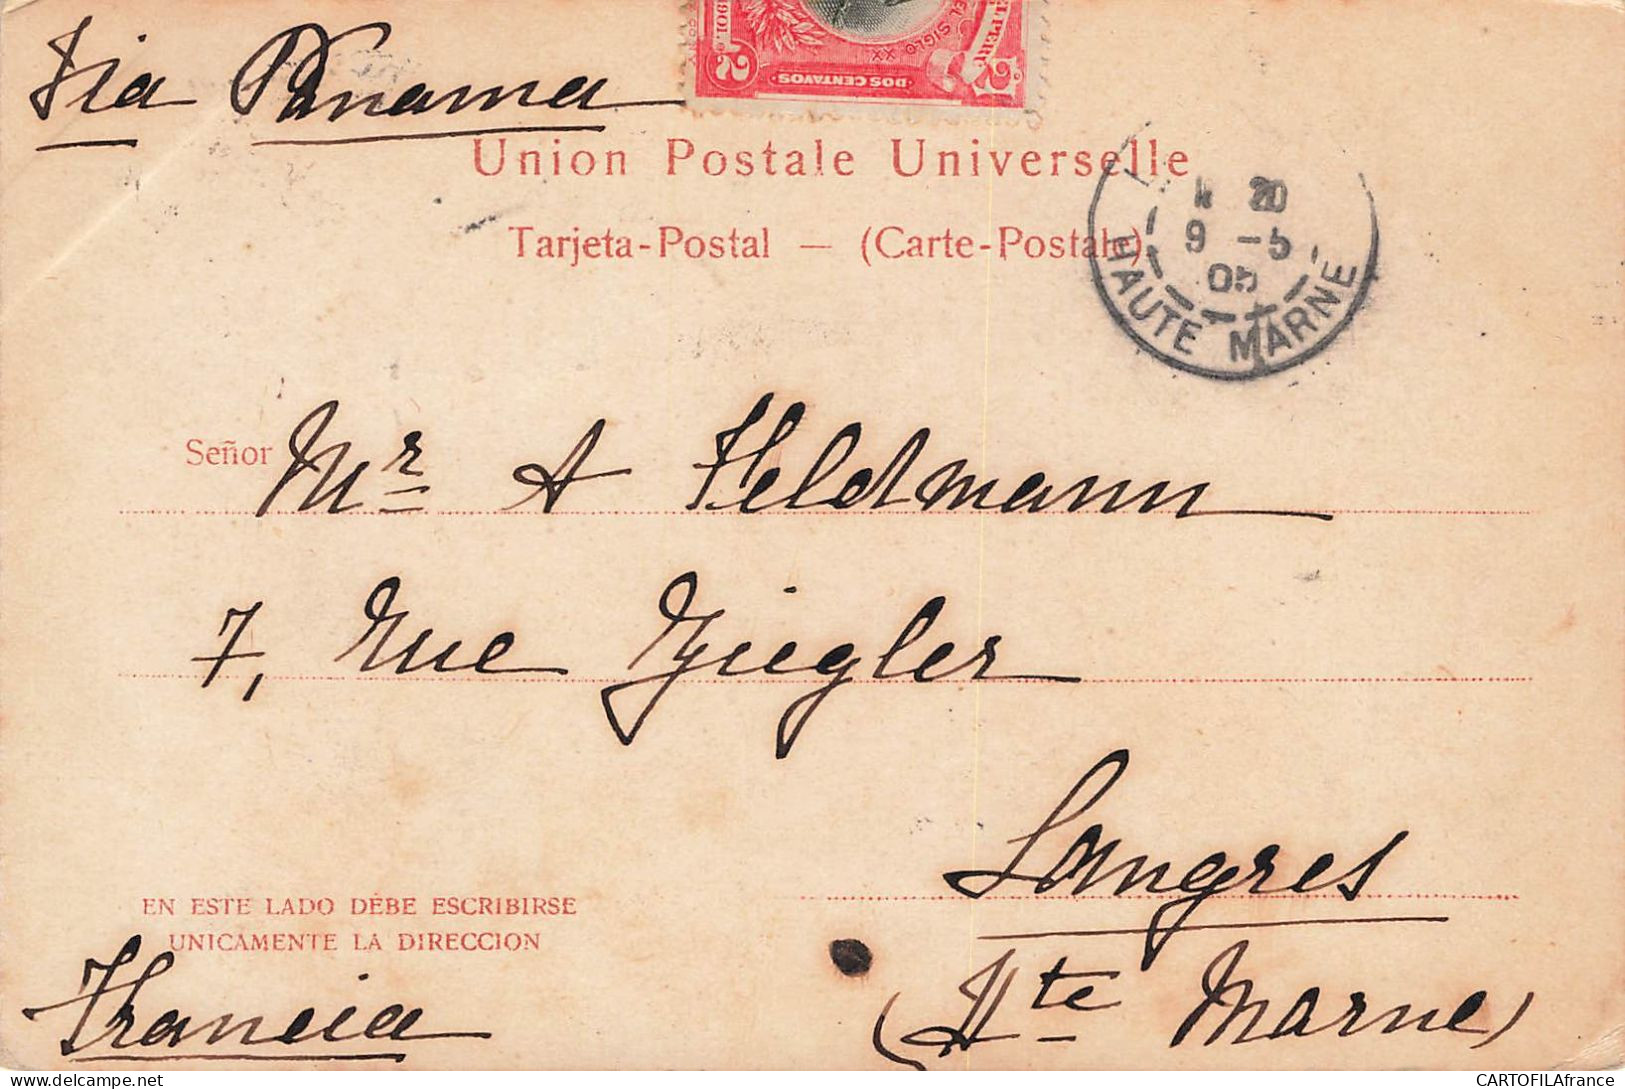 Via Panama
DOS CENTAVOS
EL SIGLO XX
2
Union Postale Universelle
Tarjeta-Postal — (Carte-Postale)
20
9 -5
05
HAUTE MARNE
Señor Mr A Feldmann
7, Rue Ziegler
Langres
EN ESTE LADO DEBE ESCRIBIRSE
UNICAMENTE LA DIRECCION
Francia
(Hte Marne)
CARTOFILAfrance